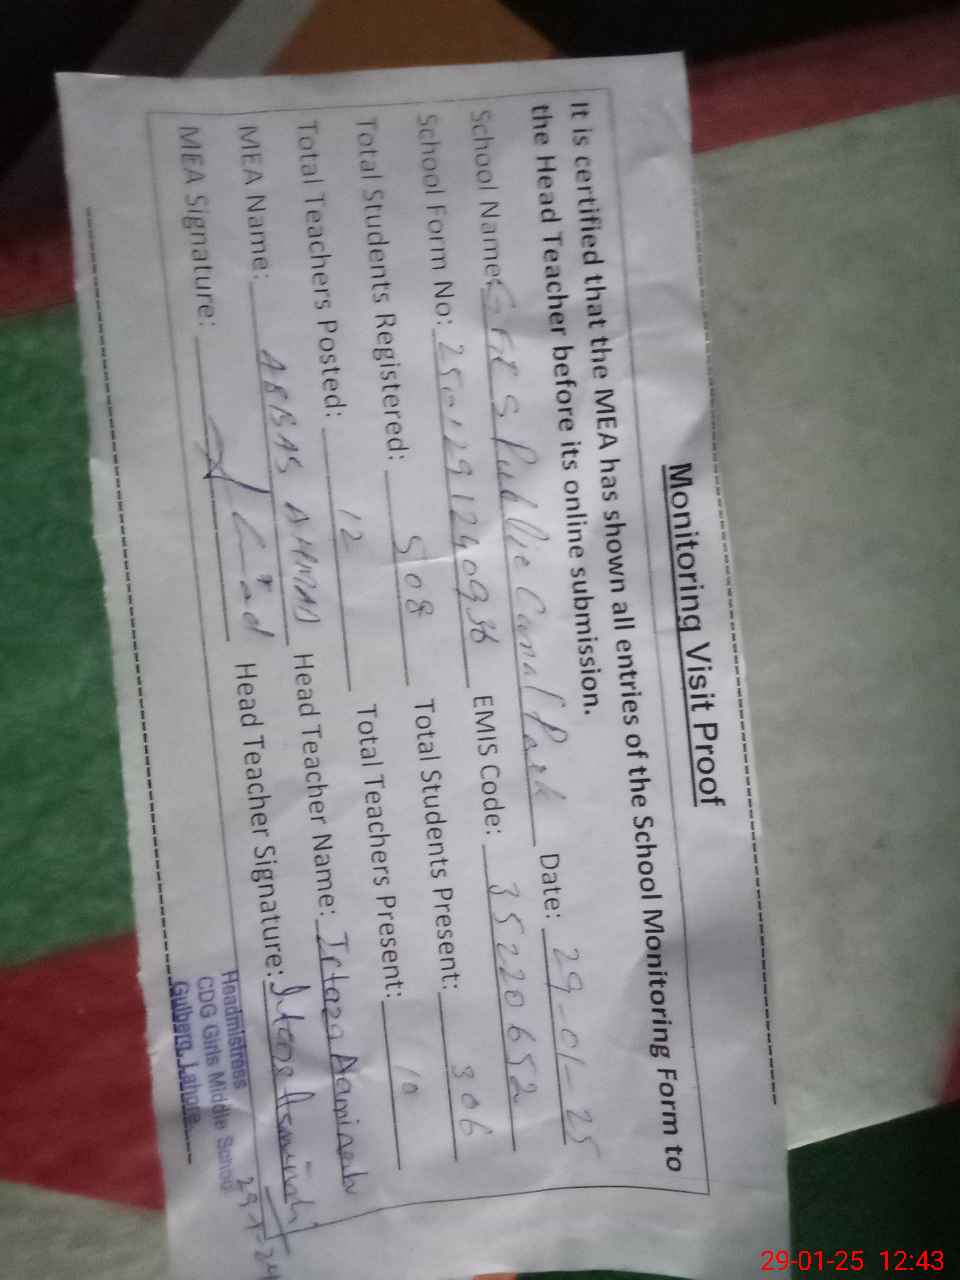 Monitoring Visit Proof
It is certified that the MEA has shown all entries of the School Monitoring Form to
the Head Teacher before its online submission.
School Name: Public Canal Park Date: 29-01-25
School Form No: EMIS Code: 35220652
Total Students Registered: 508 Total Students Present: 306
Total Teachers Posted: 12 Total Teachers Present: 10
MEA Name: ABBAS AHMAD Head Teacher Name:
MEA Signature: Head Teacher Signature:
Headmistress
CDG Girls Middle School
Gulberg, Lahore
29-01-25 12:43